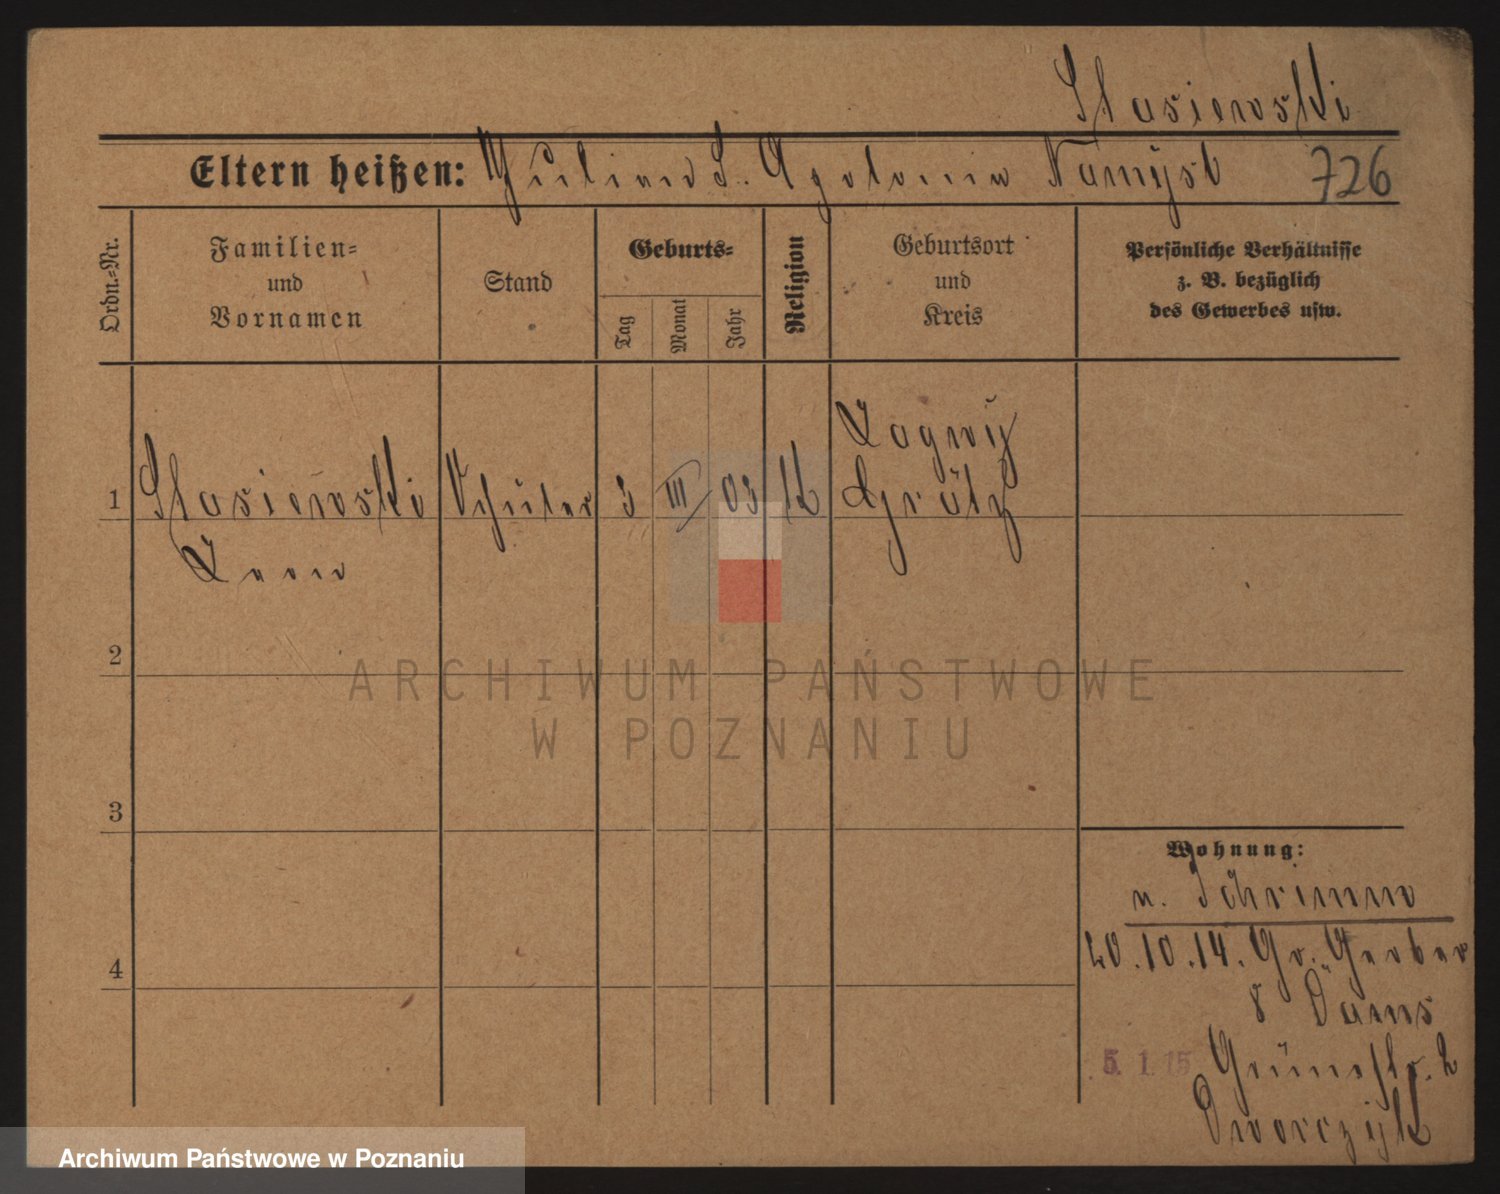 Stasiewski
Eltern heißen: Julian S. Apolonia Namysl 726
Ordn.=Nr.
Familien=
und
Vornamen
Stand
Geburts=
Tag
Monat
Jahr
Religion
Geburtsort
und
Kreis
Persönliche Verhältnisse
z. B. bezüglich
des Gewerbes usw.
1 Stasiewski Schüler 3 III 03 K
Leon
Grätz
2
3
4
ARCHIWUM PAŃSTWOWE
W POZNANIU
Wohnung:
n. Schrimm
20.10.14. Gr. Gerber
8 Dams
5. 1. 15 Grünestr. 2
Dworczyk
Archiwum Państwowe w Poznaniu